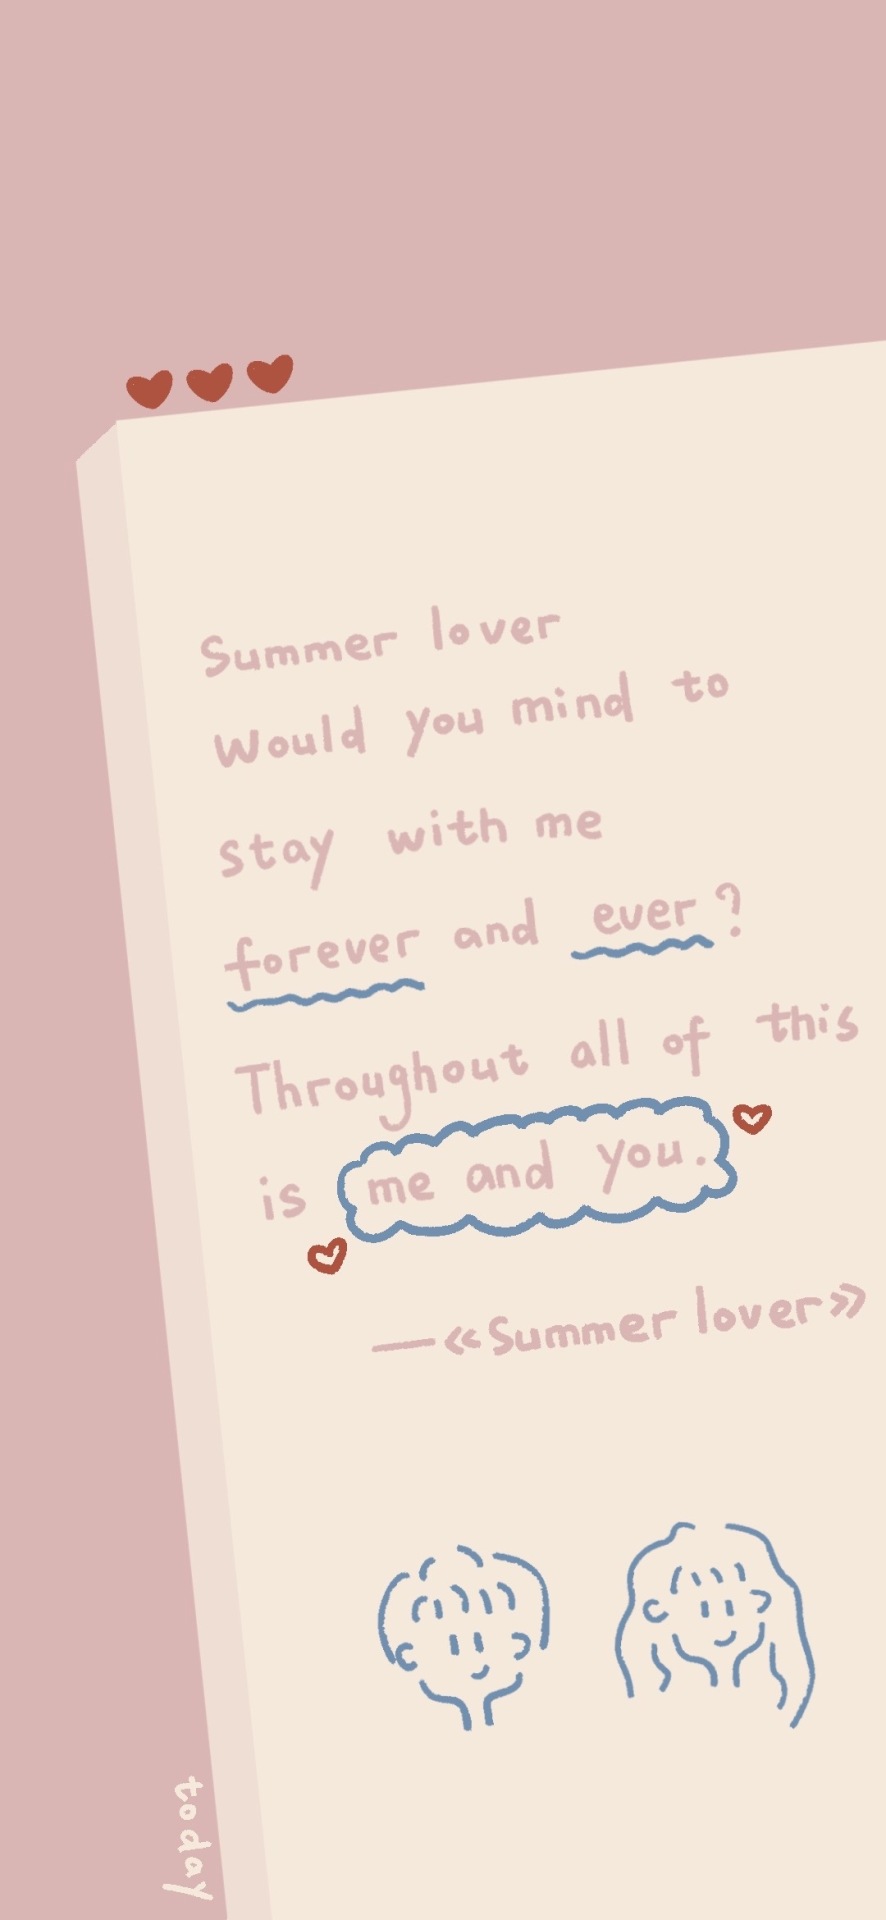 Summer lover
Would you mind to
stay with me
forever and ever?
Throughout all of this
is me and you.
—«Summer lover»
today